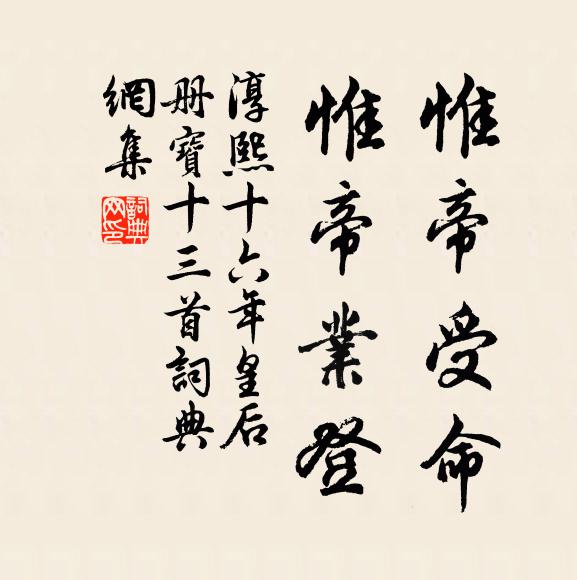 惟帝受命
惟帝業登
淳熙十六年皇后
册寶十三首詞典
網集
詞典网印